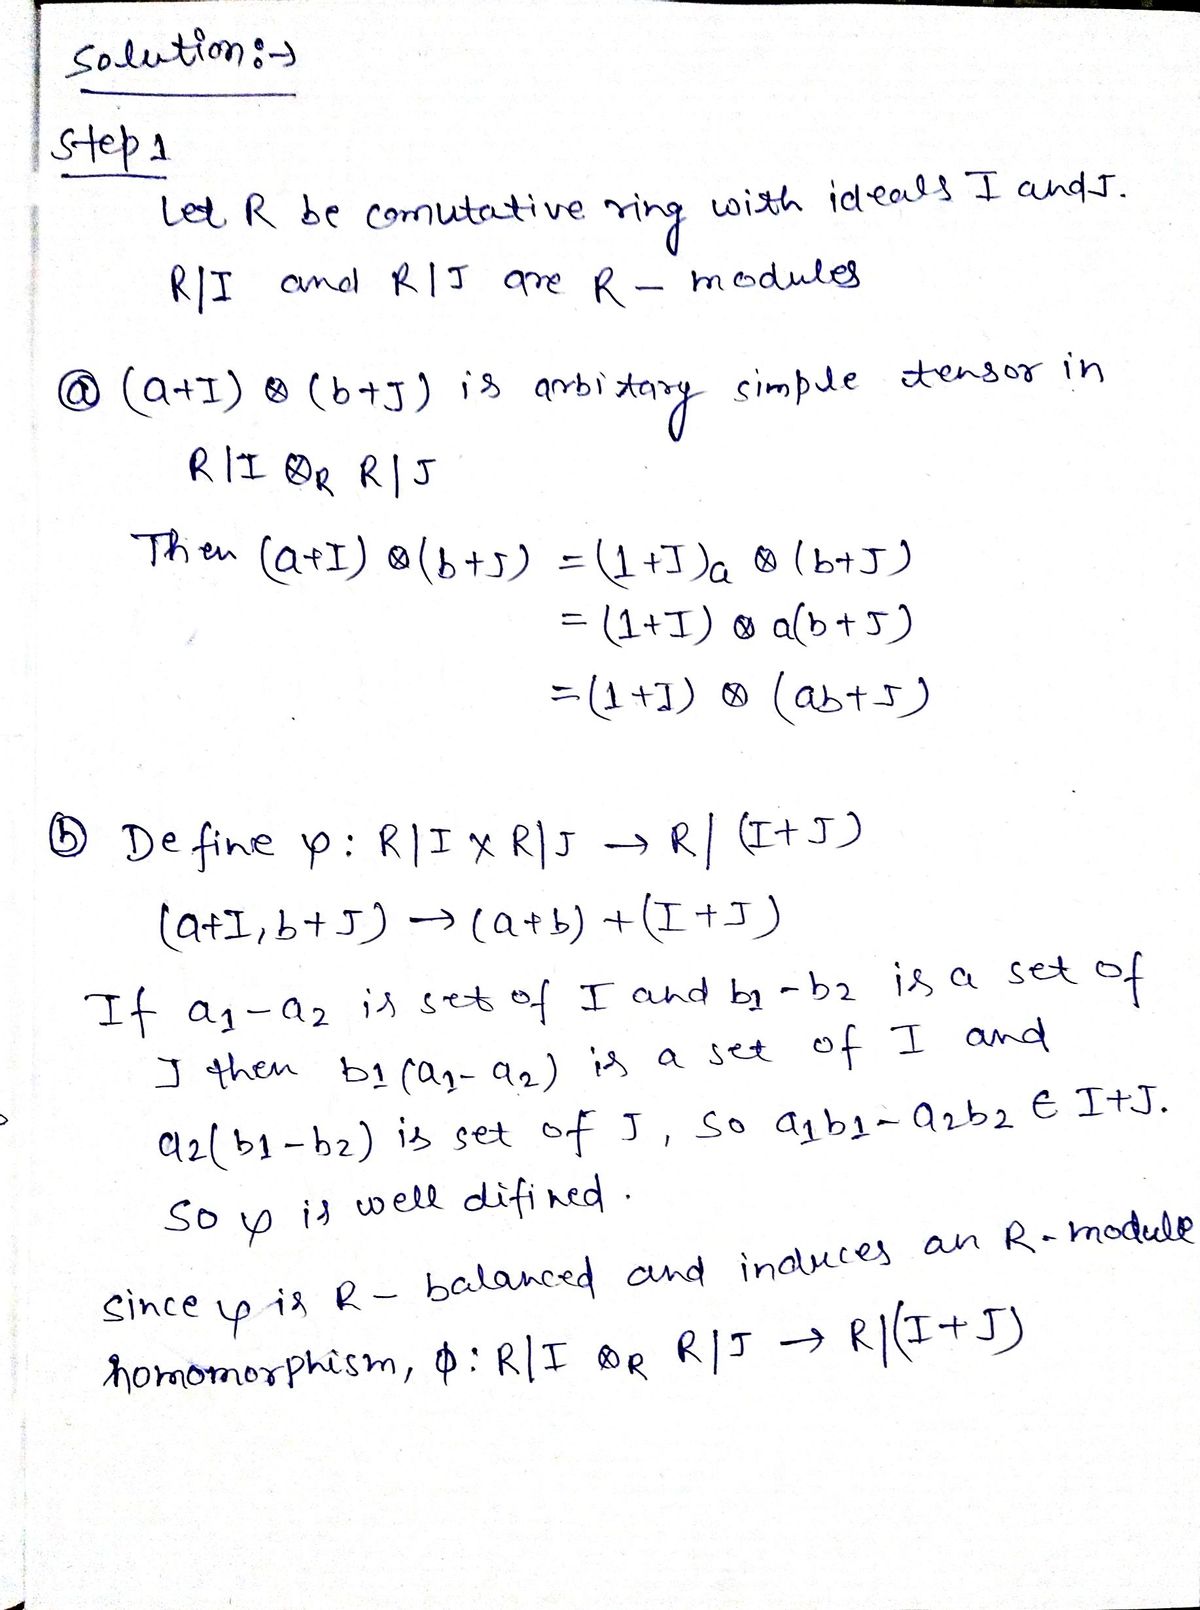 Solution:→
Step 1
Let R be comutative ring with ideals I and J.
R|I and R|J are R - modules
ⓐ (a+I) ⊗ (b+J) is arbitary simple tensor in
R|I ⊗R R|J
Then (a+I) ⊗ (b+J) = (1+I)a ⊗ (b+J)
= (1+I) ⊗ a(b+J)
= (1+I) ⊗ (ab+J)
ⓑ Define φ: R|I x R|J → R| (I+J)
(a+I, b+J) → (a+b) + (I+J)
If a1-a2 is set of I and b1-b2 is a set of
J then b1(a1-a2) is a set of I and
a2(b1-b2) is set of J, so a1b1-a2b2 ∈ I+J.
So φ is well difined.
since φ is R - balanced and induces an R-module
homomorphism, ϕ: R|I ⊗R R|J → R|(I+J)